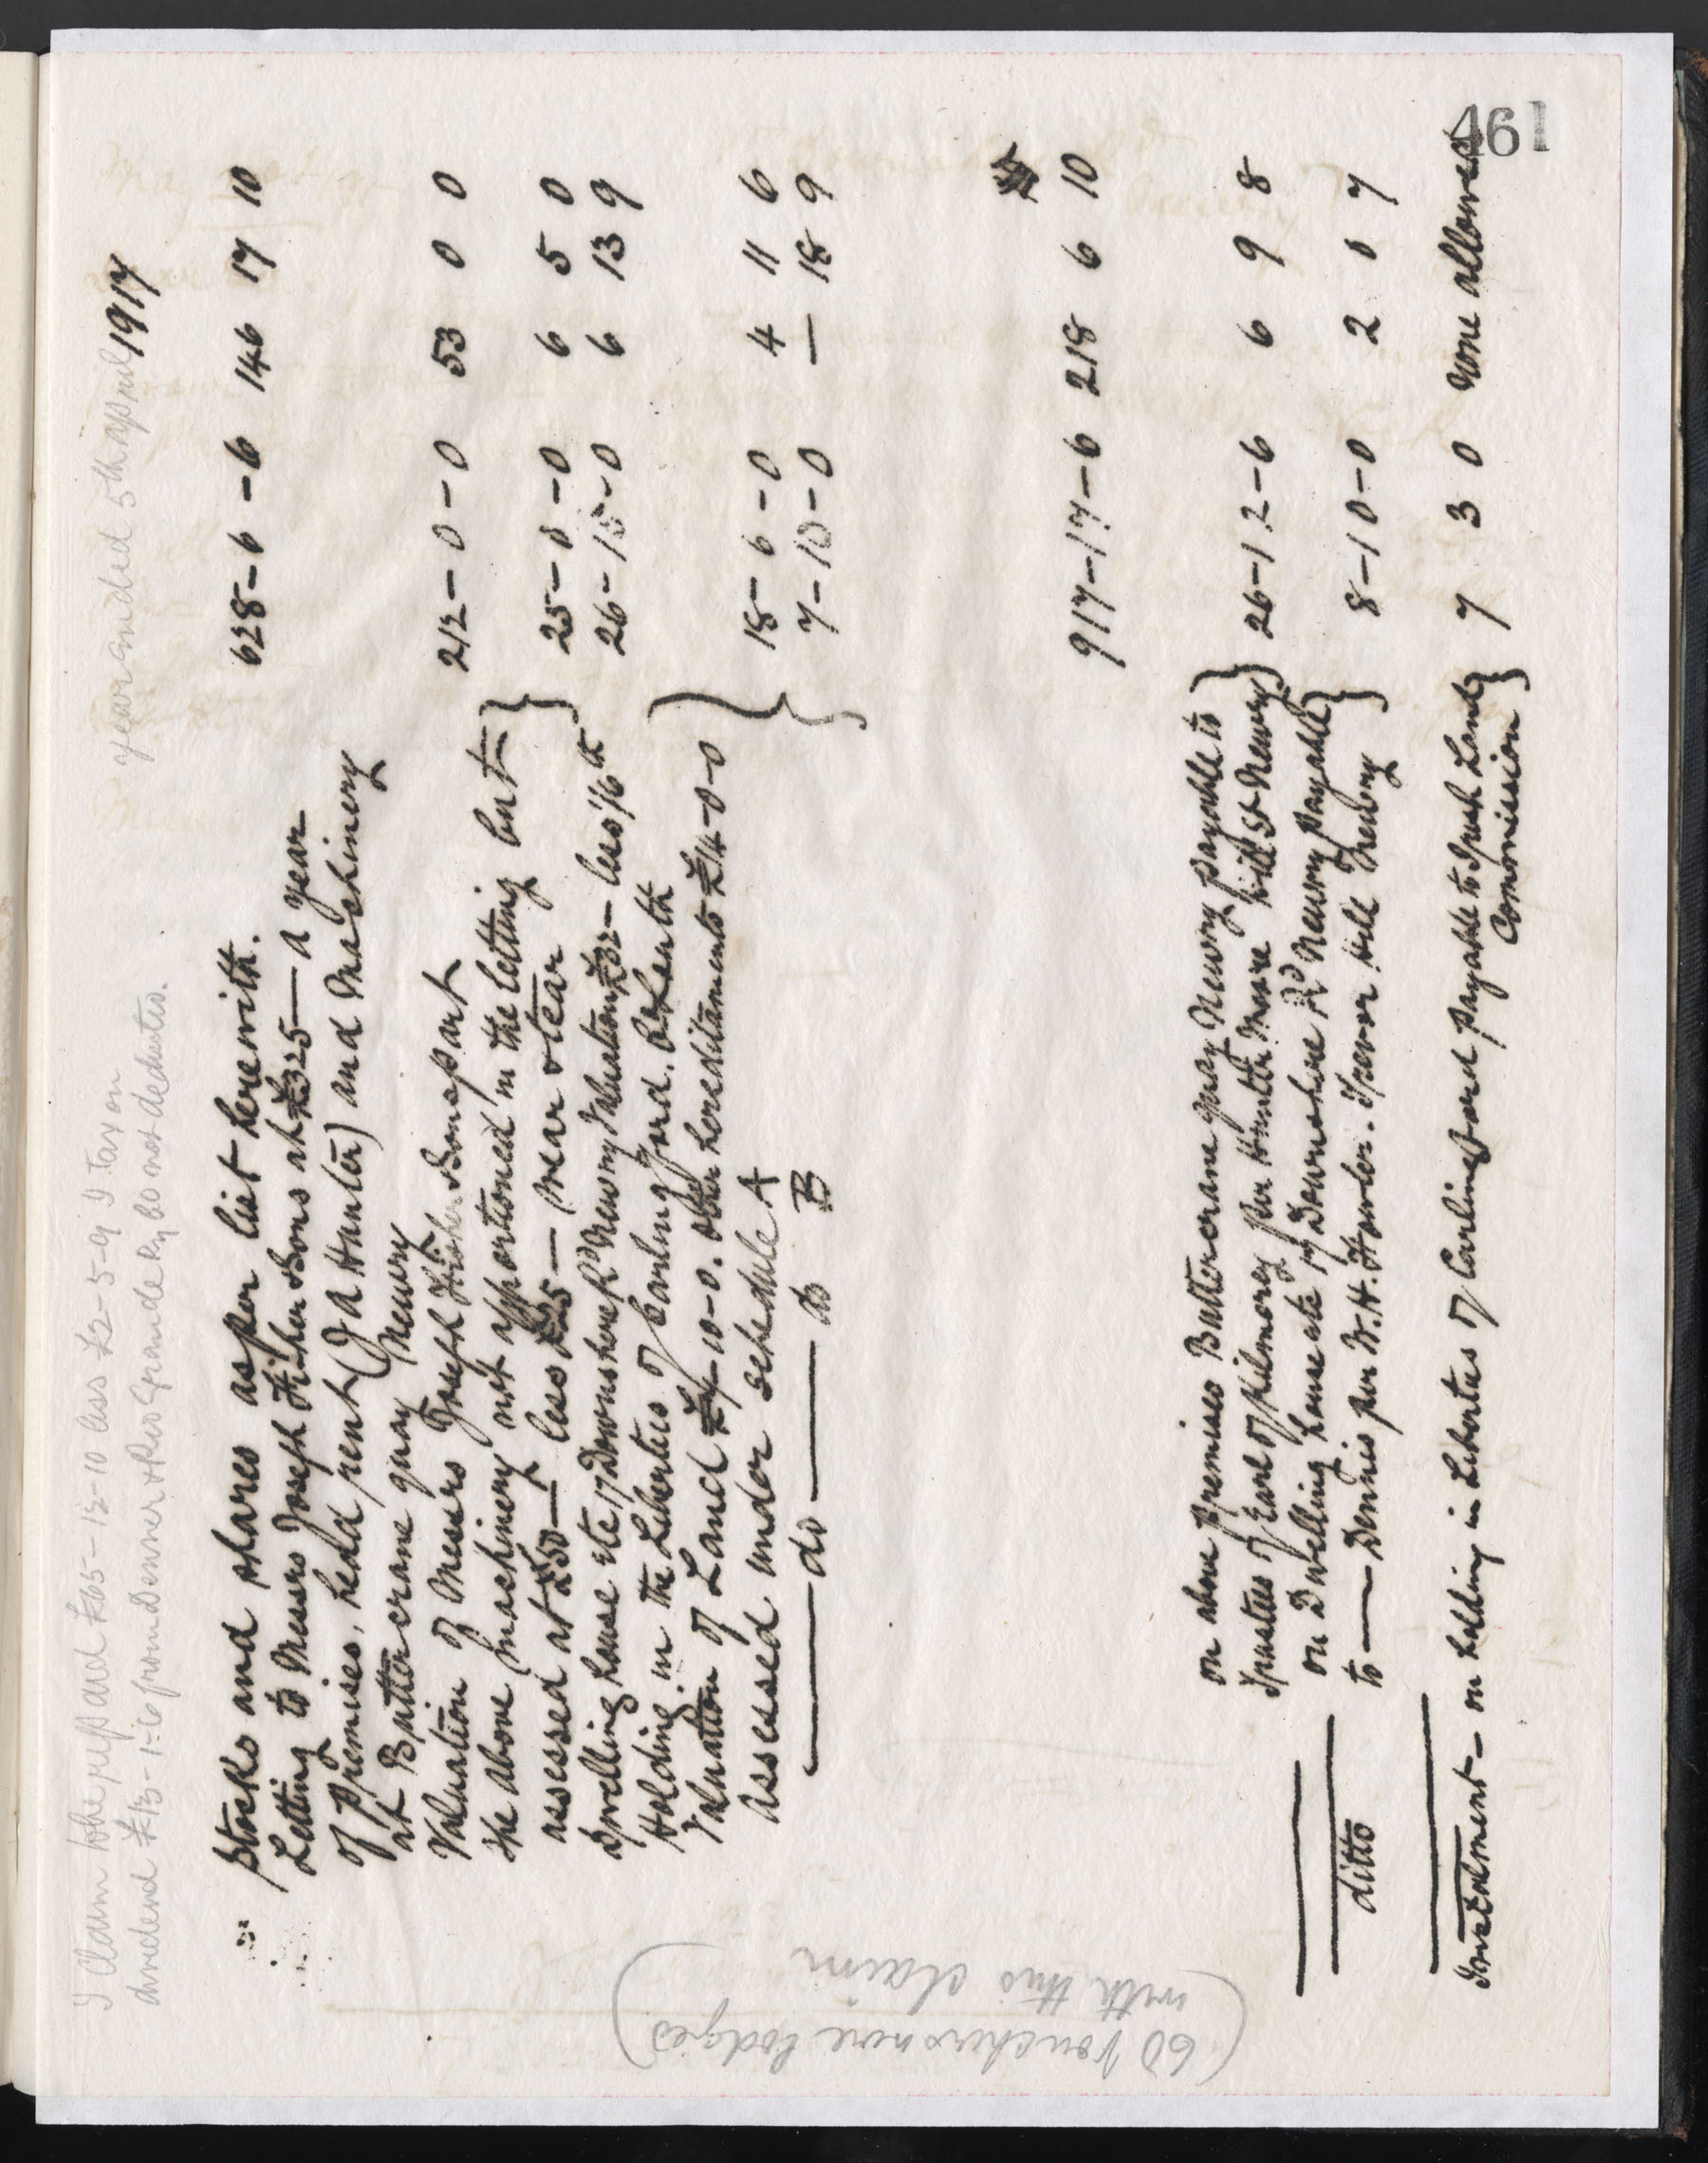 461
I Claim to be repaid £65-12-10 less £2-5-9 I Tax on
dividend £13-1-6 from Denver & Rio Grande Ry Co not deducted.
year ended 5th april 1917
Stocks and shares as per list herewith. 628-6-6 146 17 10
Letting to Messrs Joseph Fisher & Sons at £325— a year
of premises, head rent (J A Hunter) and Machinery
at Buttercrane quay Newry 212-0-0 53 0 0
Valuation of Messrs Joseph Fisher & Sons part
the above machinery not apportioned in the letting but
assessed at £50— less £25— wear & tear 25-0-0 6 5 0
Dwelling house etc 17 Downshire Rd Newry Valuation £32— less 1/6th 26-13-0 6 13 9
Holding in the Liberties of Carlingford. Co Louth
Valuation of Land £4-10-0. other hereditaments £14-0-0
assessed under schedule A 18-6-0 4 11 6
do do B 7-10-0 — 18 9
917-17-6 218 6 10
on above premises Buttercrane quay Newry payable to
Trustees of Earl of Kilmorey per Hunter Moore Hill St Newry 26-12-6 6 9 8
ditto on Dwelling house etc 17 Downshire Rd Newry payable
to — Dennis per W.H. Fowler. Trevor Hill Newry 8-10-0 2 0 7
Instalment — on holding in Liberties of Carlingford payable to Irish Land
Commission 7 3 0 none allowed
(60 Vouchers now lodged
with this claim)